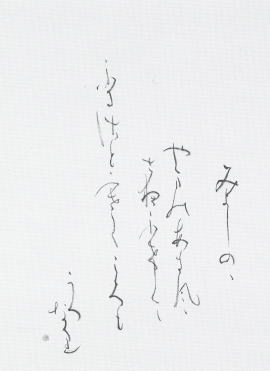 みよしのゝ
やまのあき風
さ夜ふけて
ふるさとさむくころも
うつなり